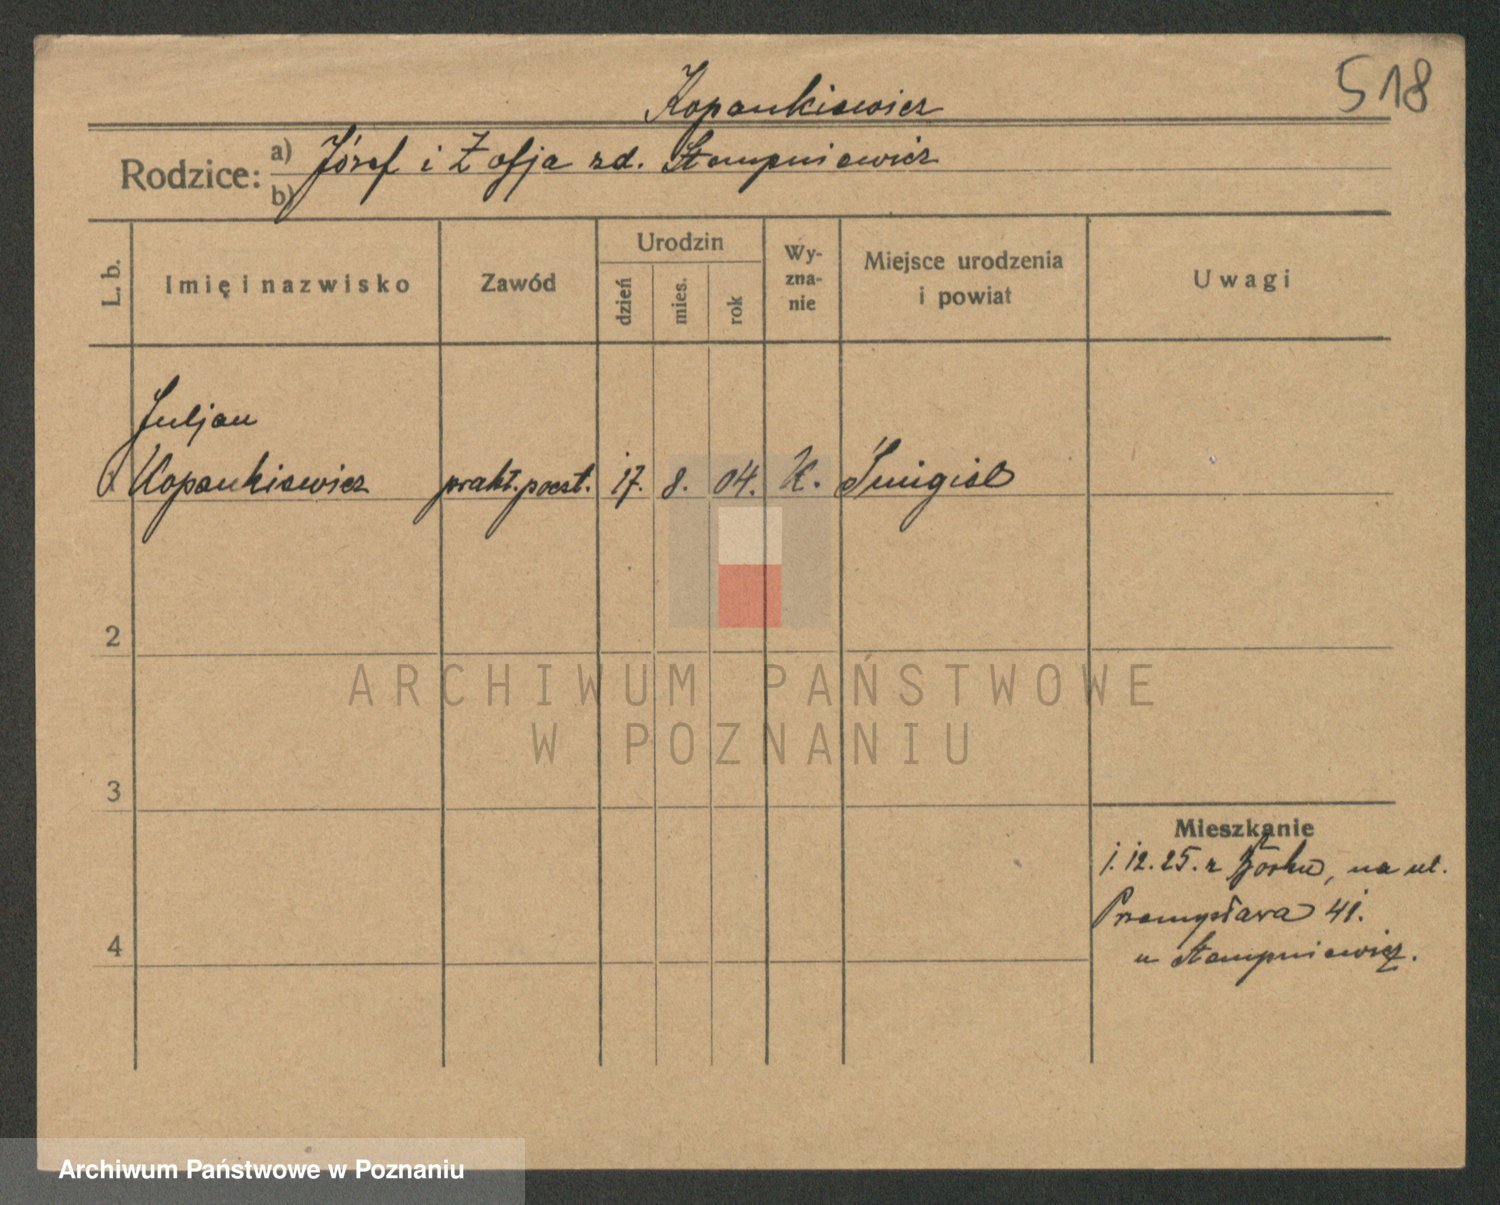 518
Kopankiewicz
Rodzice: a) Józef i Zofja zd. Stempniewicz
b)
L. b. Imię i nazwisko Zawód Urodzin dzień mies. rok Wy-zna-nie Miejsce urodzenia i powiat Uwagi
Juljan
Kopankiewicz prakt. poczt. 17. 8. 04. K. Śmigiel
2
3
4
Mieszkanie
1.12.25. z Borku, na ul.
Przemysława 41.
u Stempniewicz.
ARCHIWUM PAŃSTWOWE
W POZNANIU
Archiwum Państwowe w Poznaniu